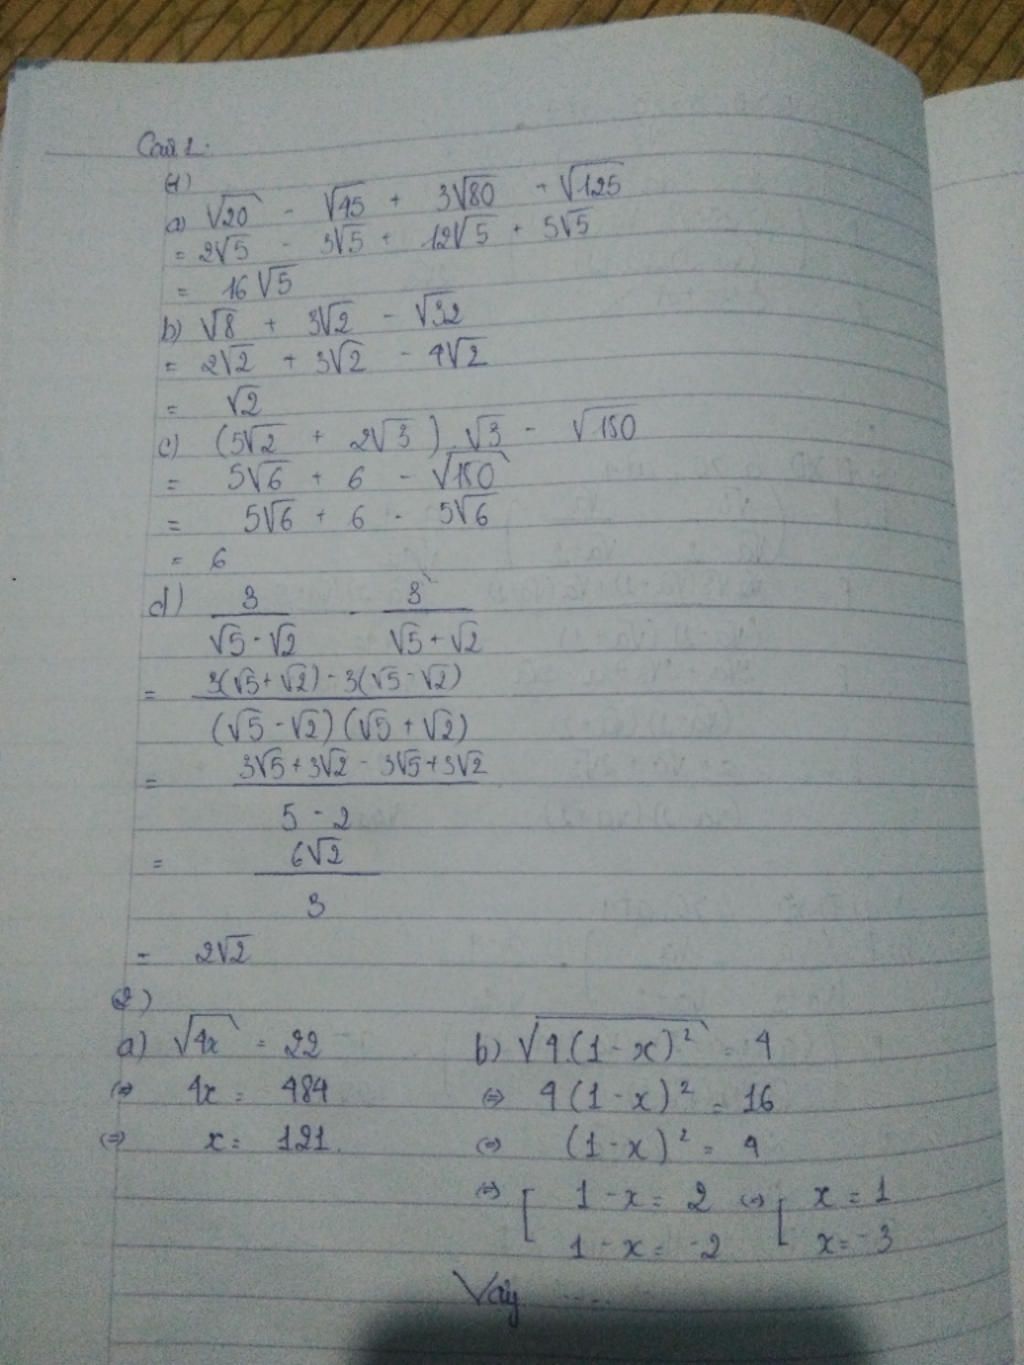 Câu 1:
(1)
a) √20 - √45 + 3√80 + √125
= 2√5 - 3√5 + 12√5 + 5√5
= 16√5
b) √8 + 3√2 - √32
= 2√2 + 3√2 - 4√2
= √2
c) (5√2 + 2√3).√3 - √150
= 5√6 + 6 - √150
= 5√6 + 6 - 5√6
= 6
d) 3/(√5 - √2) - 3/(√5 + √2)
= (3(√5 + √2) - 3(√5 - √2))/((√5 - √2)(√5 + √2))
= (3√5 + 3√2 - 3√5 + 3√2)/(5 - 2)
= 6√2/3
= 2√2
(2)
a) √4x = 22
⇔ 4x = 484
⇔ x = 121.
b) √4.(1 - x)² = 4
⇔ 4(1 - x)² = 16
⇔ (1 - x)² = 4
⇔ [ 1 - x = 2 ⇔ [ x = 1
1 - x = -2 x = -3
Vậy ....